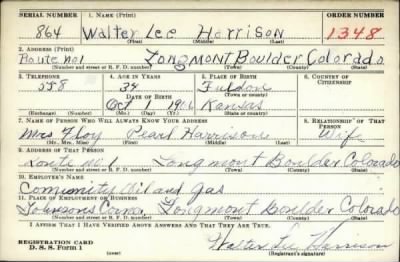 SERIAL NUMBER 1. NAME (Print) ORDER NUMBER
864 Walter Lee Harrison 1348
(First) (Middle) (Last)
2. ADDRESS (Print)
Route no 1 Longmont Boulder Colorado
(Number and street or R. F. D. number) (Town) (County) (State)
3. TELEPHONE 4. AGE IN YEARS 5. PLACE OF BIRTH 6. COUNTRY OF CITIZENSHIP
558 34
DATE OF BIRTH (Town or county)
Oct 1 Kansas
(Exchange) (Number) (Mo.) (Day) (Yr.) (State or country)
7. NAME OF PERSON WHO WILL ALWAYS KNOW YOUR ADDRESS 8. RELATIONSHIP OF THAT PERSON
Mrs Floy Pearl Harrison Wife
(Mr., Mrs., Miss) (First) (Middle) (Last)
9. ADDRESS OF THAT PERSON
Route no. 1 Longmont Boulder Colorado
(Number and street or R. F. D. number) (Town) (County) (State)
10. EMPLOYER'S NAME
Comunity Oil and Gas
11. PLACE OF EMPLOYMENT OR BUSINESS
Johnsons Corner Longmont Boulder Colorado
(Number and street or R. F. D. number) (Town) (County) (State)
I AFFIRM THAT I HAVE VERIFIED ABOVE ANSWERS AND THAT THEY ARE TRUE.
REGISTRATION CARD
D. S. S. Form 1 (over) Walter Lee Harrison
(Registrant's signature)